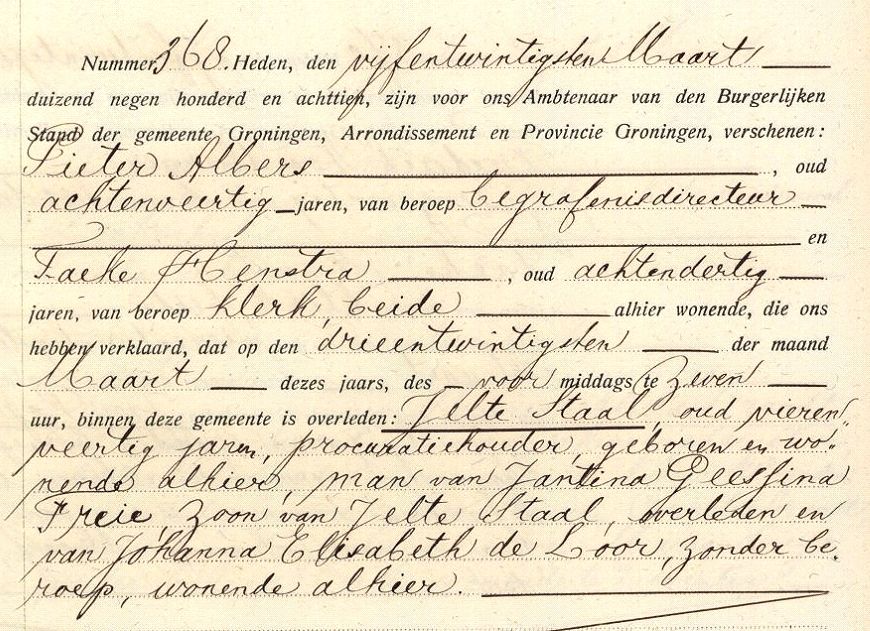 Nummer 368. Heden, den vijfentwintigsten Maart
duizend negen honderd en achttien, zijn voor ons Ambtenaar van den Burgerlijken
Stand der gemeente Groningen, Arrondissement en Provincie Groningen, verschenen:
Pieter Albers, oud
achtenveertig jaren, van beroep begrafenisdirecteur
en
Taeke Henstra, oud achtendertig
jaren, van beroep klerk, beide alhier wonende, die ons
hebben verklaard, dat op den drieentwintigsten der maand
Maart dezes jaars, des voor middags te zeven
uur, binnen deze gemeente is overleden: Jelte Staal, oud vieren"
veertig jaren, procuratiehouder, geboren en wo"
nende alhier, man van Jantina Geessina
Freie, zoon van Jelte Staal, overleden en
van Johanna Elisabeth de Loor, zonder be"
roep, wonende alhier.